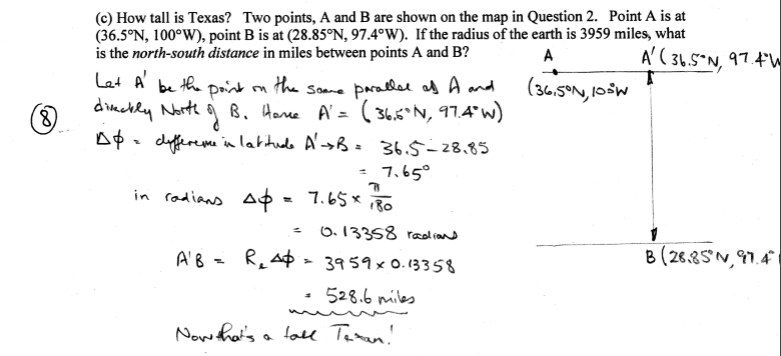 (c) How tall is Texas? Two points, A and B are shown on the map in Question 2. Point A is at
(36.5°N, 100°W), point B is at (28.85°N, 97.4°W). If the radius of the earth is 3959 miles, what
is the north-south distance in miles between points A and B?
A
A' (36.5°N, 97.4°W
(36.5°N, 100°W
Let A' be the point on the same parallel as A and
directly North of B. Hence A' = (36.5°N, 97.4°W)
(8)
Δϕ = difference in latitude A'→B = 36.5 - 28.85
= 7.65°
in radians Δϕ = 7.65 × π/180
= 0.13358 radians
A'B = Re Δϕ = 3959 × 0.13358
B (28.85°N, 97.4°
= 528.6 miles
Now that's a tall Texan!